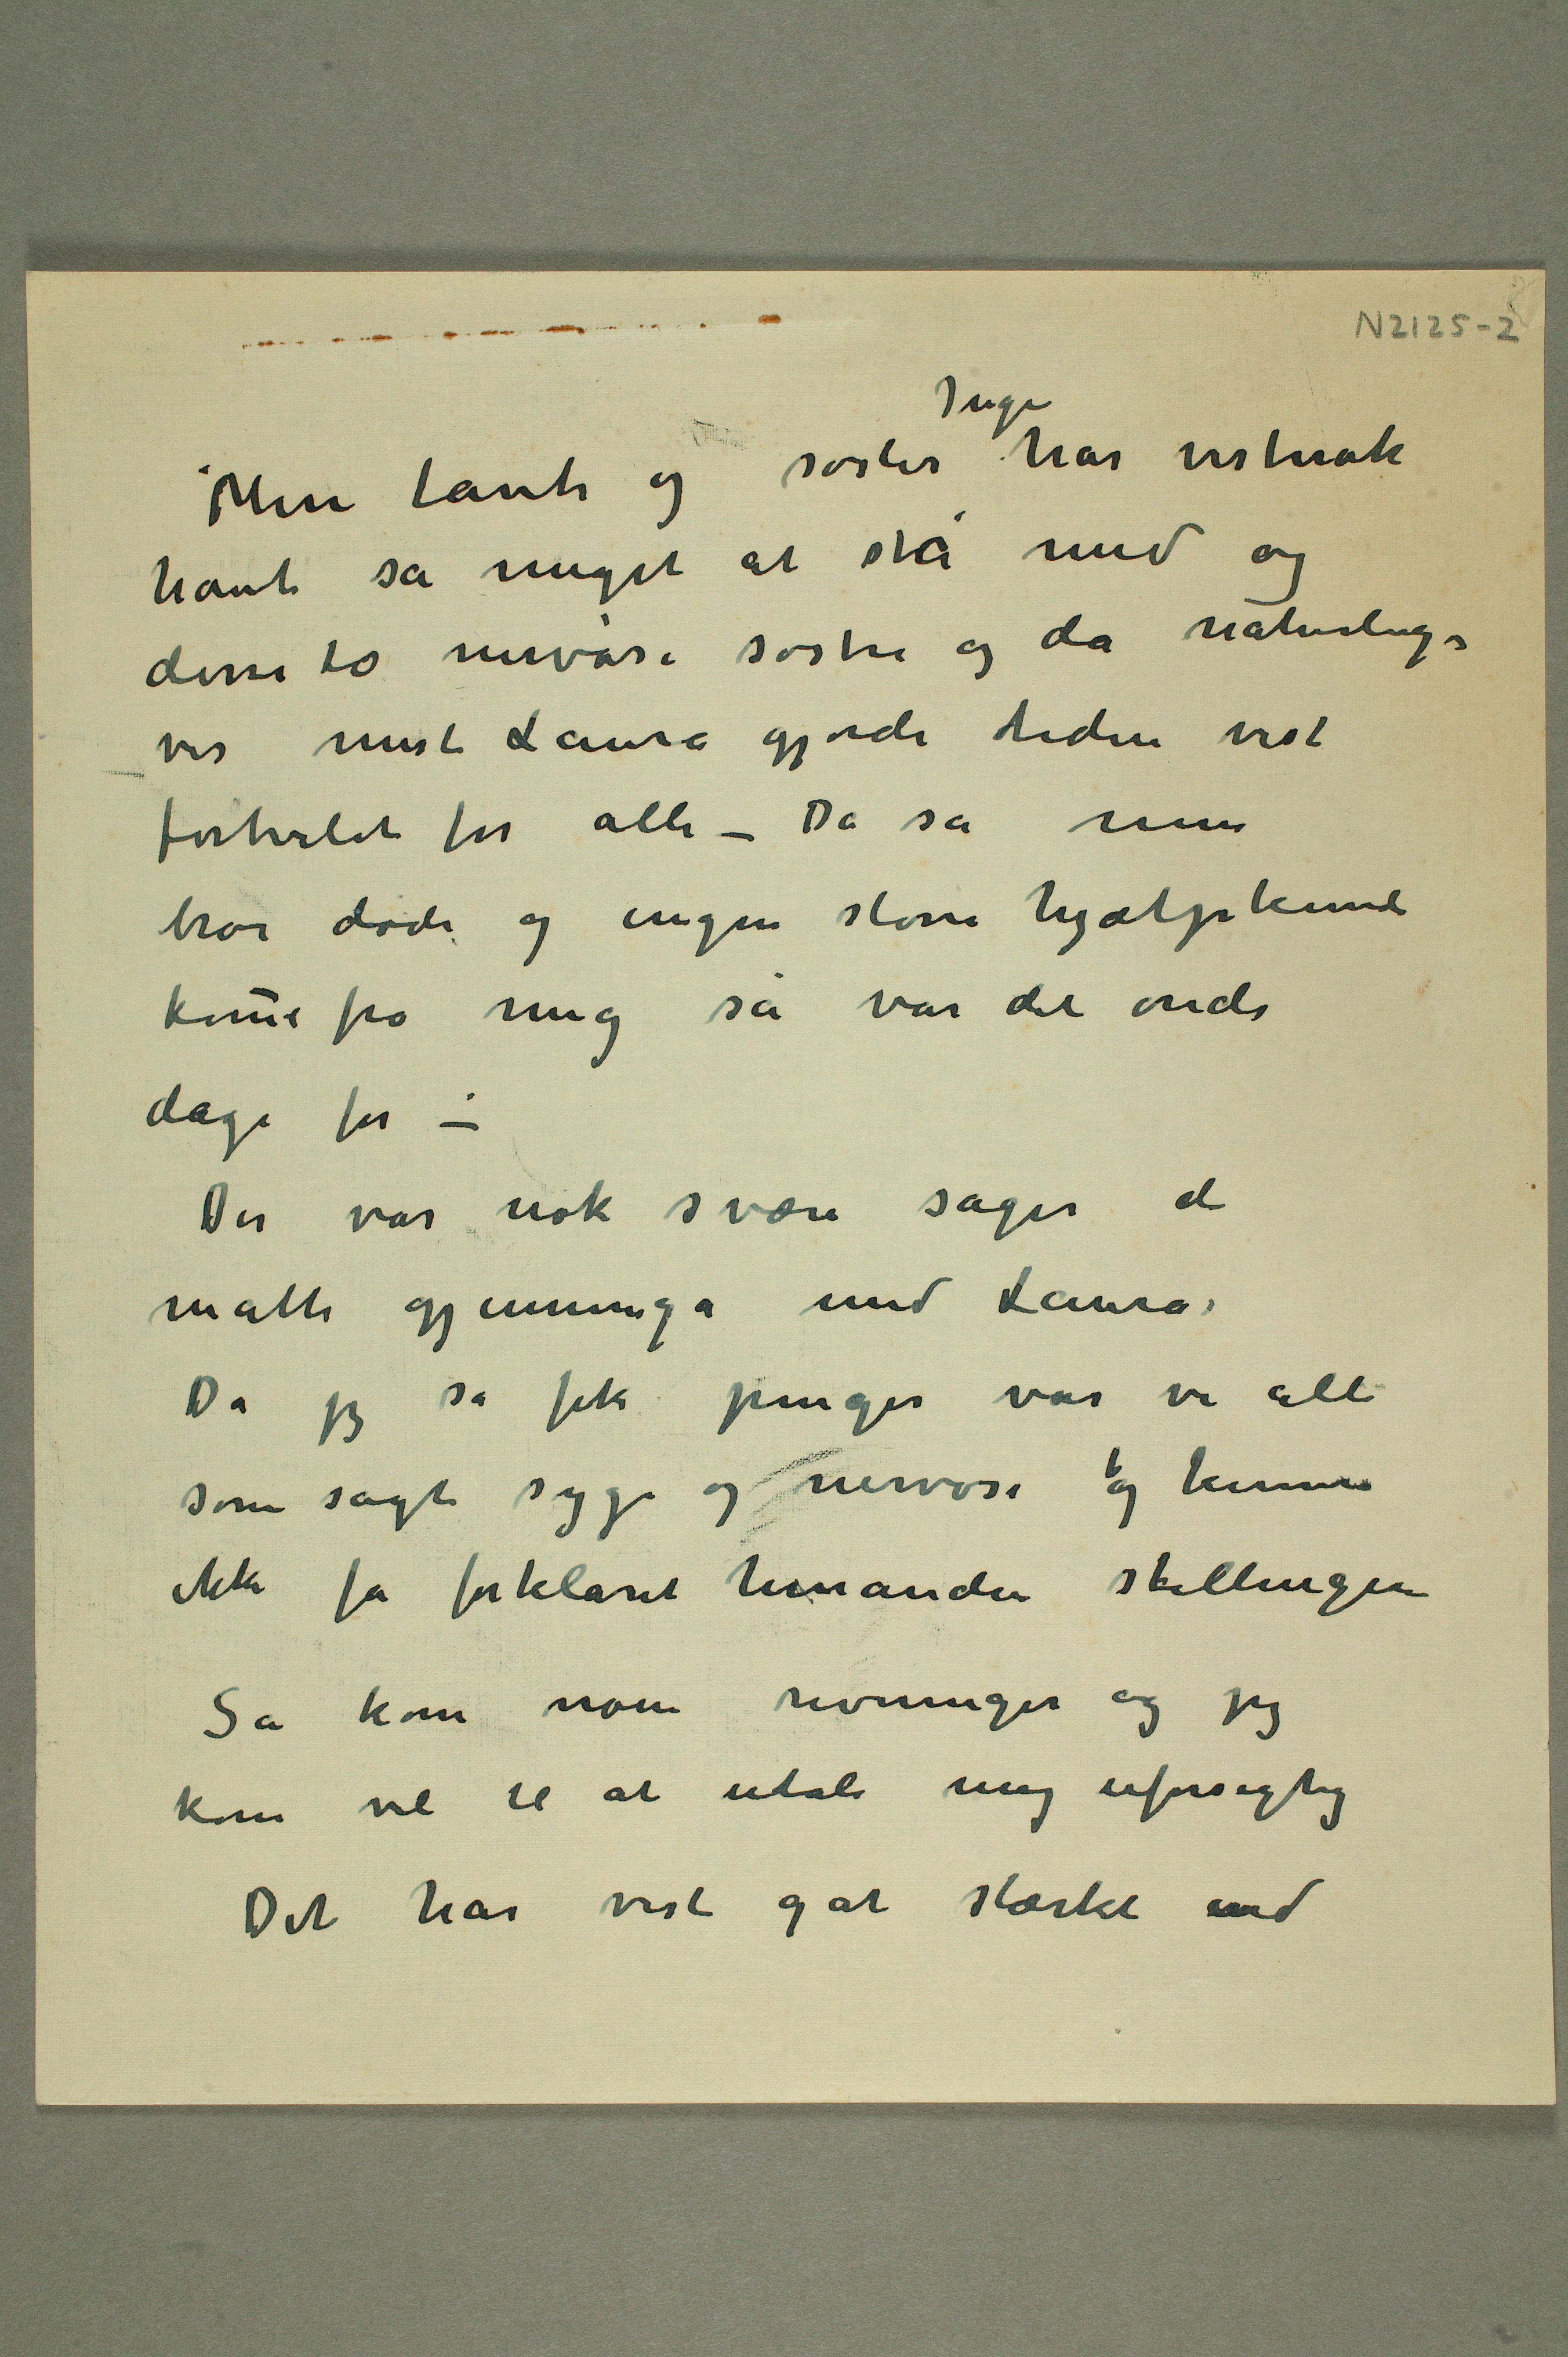 N2125-2
Inge
Min tante og søster har vistnok
havt så meget at stå med og
disse to nervøse søstre og da naturlig-
vis mest Laura gjorde tiden vist
fortvilet for alle – Da så min
bror døde og ingen større hjælp kunde
kom̅e fra mig så var det onde
dage for –
Der var nok svære sager de
måtte gjennemgå med Laura.
Da jeg så fik penger var vi alle
som sagt syge og nervøse og kunne
ikke få forklaret hinanden stillingen
Så kom noen rivninger og jeg
kom vel til at utale mig uforsigtig
Det har vist gåt stærkt ind